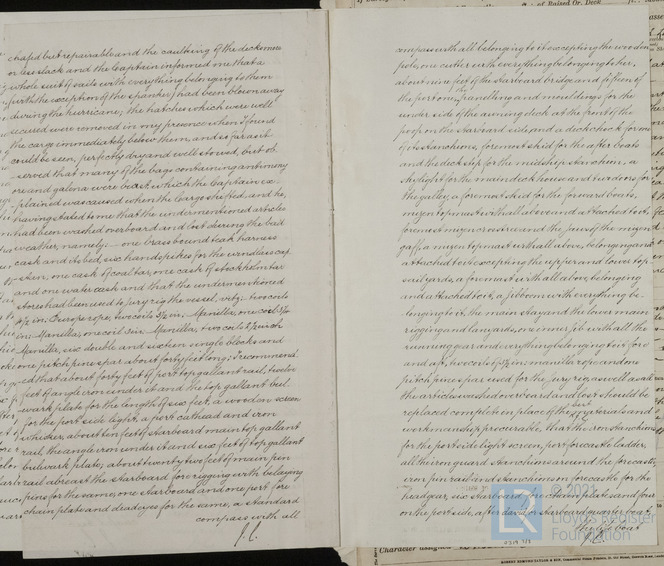 chafed but repairable and the caulking of the deck more
or less slack and the Captain informed me that a
whole suit of sails with everything belonging to them
(with the exception of the spanker) had been blown away
during the hurricane; the hatches which were well
secured were removed in my presence when I found
the cargo immediately below them, and so far as it
could be seen, perfectly dry and well stowed, but ob-
served that many of the bags containing antimony
ore and galena were burst which the Captain ex-
plained was caused when the Cargo shifted, and he,
having stated to me that the undermentioned articles
had been washed overboard and lost during the bad
weather, namely:— one brass bound teak harness
cask and its bed, six handspikes for the windlass cap
stan, one cask of coal tar, one cask of Stockholm tar
and one water cask and that the undermentioned
stores had been used to jury rig the vessel, viz:— two coils
in. Europe rope, two coils 3½ in. Manilla, one coil
Manilla, one coil 3 in. Manilla, two coils 2½ inch
Manilla, six double and sixteen single blocks and
one pitch pine spar about forty feet long; I recommend
ed that about forty feet of port topgallant rail, twelve
feet of angle iron under it and the top gallant bul
wark plate for the length of six feet, a wooden screen
for the port side light, a port cathead and iron
whisker, about ten feet of starboard main top gallant
rail, the angle iron under it and six feet of top gallant
bulwark plate, about twenty two feet of main pin
rail abreast the starboard fore rigging with belaying
pins for the same, one starboard and one port fore
chain plate and deadeyes for the same, a standard
compass with all
compass with all belonging to it excepting the wooden
pole, one cutter with everything belonging to her,
about nine feet of the starboard bridge and fifteen of
the port one, the panelling and mouldings for the
under side of the awning deck at the front of the
poop on the starboard side, and a deck chock for one
of its stanchions, foremost skid for the after boats
and the deck step for the midship stanchion, a
skylight for the main deck house and two doors for
the galley, a foremost skid for the forward boats,
mizen topmast with all above and attached to it,
foremost mizen crosstree and the jaws of the mizen
gaff, a mizen topmast with all above, belonging and
attached to it excepting the upper and lower top
sail yards, a foremast with all above, belonging
and attached to it, a jibboom with everything be-
longing to it, the main stay and the lower main
rigging and lanyards, one inner jib with all the
running gear and everything belonging to it fore
and aft, two coils of 3½ in. manilla rope and one
pitch pine spar used for the jury rig, as well as all
the articles washed overboard and lost should be
replaced complete in place of the best materials and
workmanship procurable, that the iron stanchions
for the port side light screen, port forecastle ladder,
all the iron guard stanchions around the forecastle,
iron pin rail and stanchions on forecastle for the
headgear, six starboard fore chain plates and four
on the port side, after davit for starboard quarter boat,
the life boat
© 2021
Lloyd's Register
Foundation
Character assigned